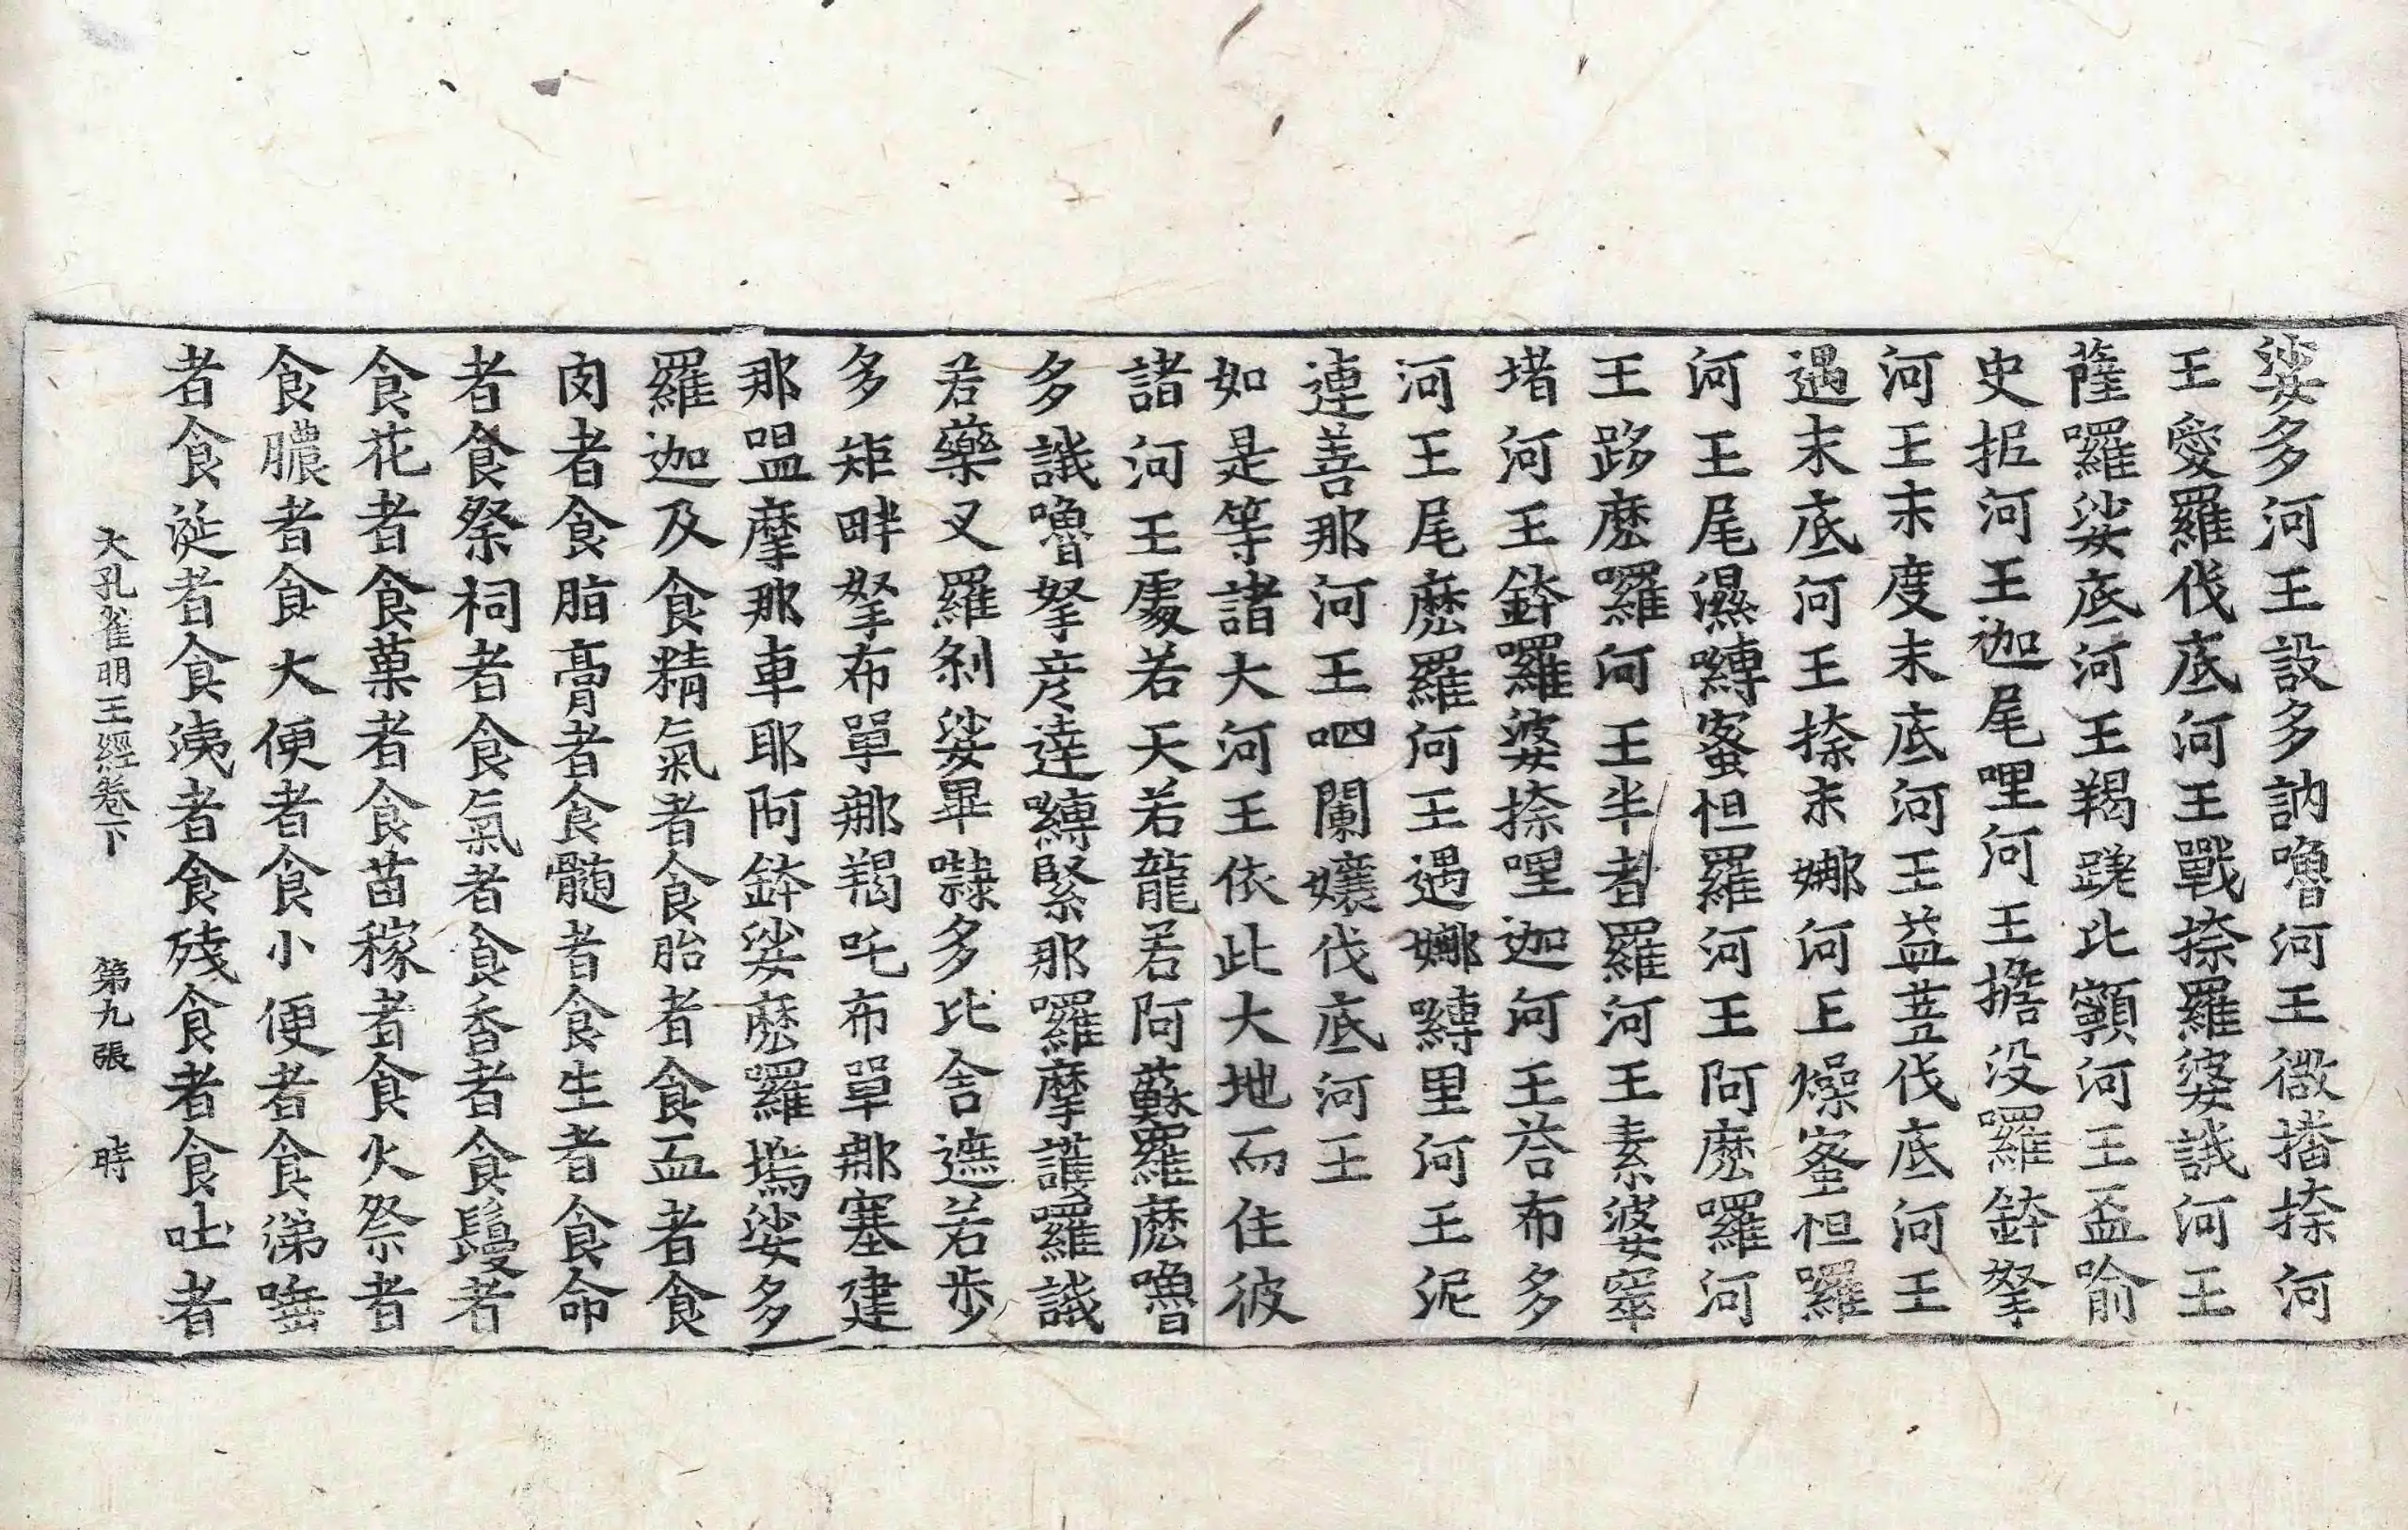 娑多河王設多訥嚕河王微播捺河
王愛羅伐底河王戰捺羅婆誐河王
薩囉娑底河王羯蹉比顙河王盃喻
史抳河王迦尾哩河王擔没囉鉢拏
河王末度末底河王益芸伐底河王
遇末底河王捺末娜河王燥蜜怛囉
河王尾濕嚩蜜怛羅河王阿麽囉河
王跢麽囉河王半者羅河王素婆窣
堵河王鉢囉婆捺哩迦河王荅布多
河王尾麽羅河王遇娜嚩里河王泥
連善那河王呬闌孃伐底河王
如是等諸大河王依此大地而住彼
諸河王處若天若龍若阿蘇羅麽嚕
多誐嚕拏彦達嚩緊那囉摩護囉誐
若藥叉羅剎娑畢隸多比舍遮若步
多矩畔拏布單那羯吒布單那塞建
那嗢摩那車耶阿鉢娑麽囉塢娑多
羅迦及食精氣者食胎者食血者食
肉者食脂膏者食髓者食生者食命
者食祭祠者食氣者食香者食鬘者
食花者食菓者食苗稼者食火祭者
食膿者食大便者食小便者食涕唾
者食涎者食洟者食殘食者食吐者
大孔雀明王經卷下 第九張 時